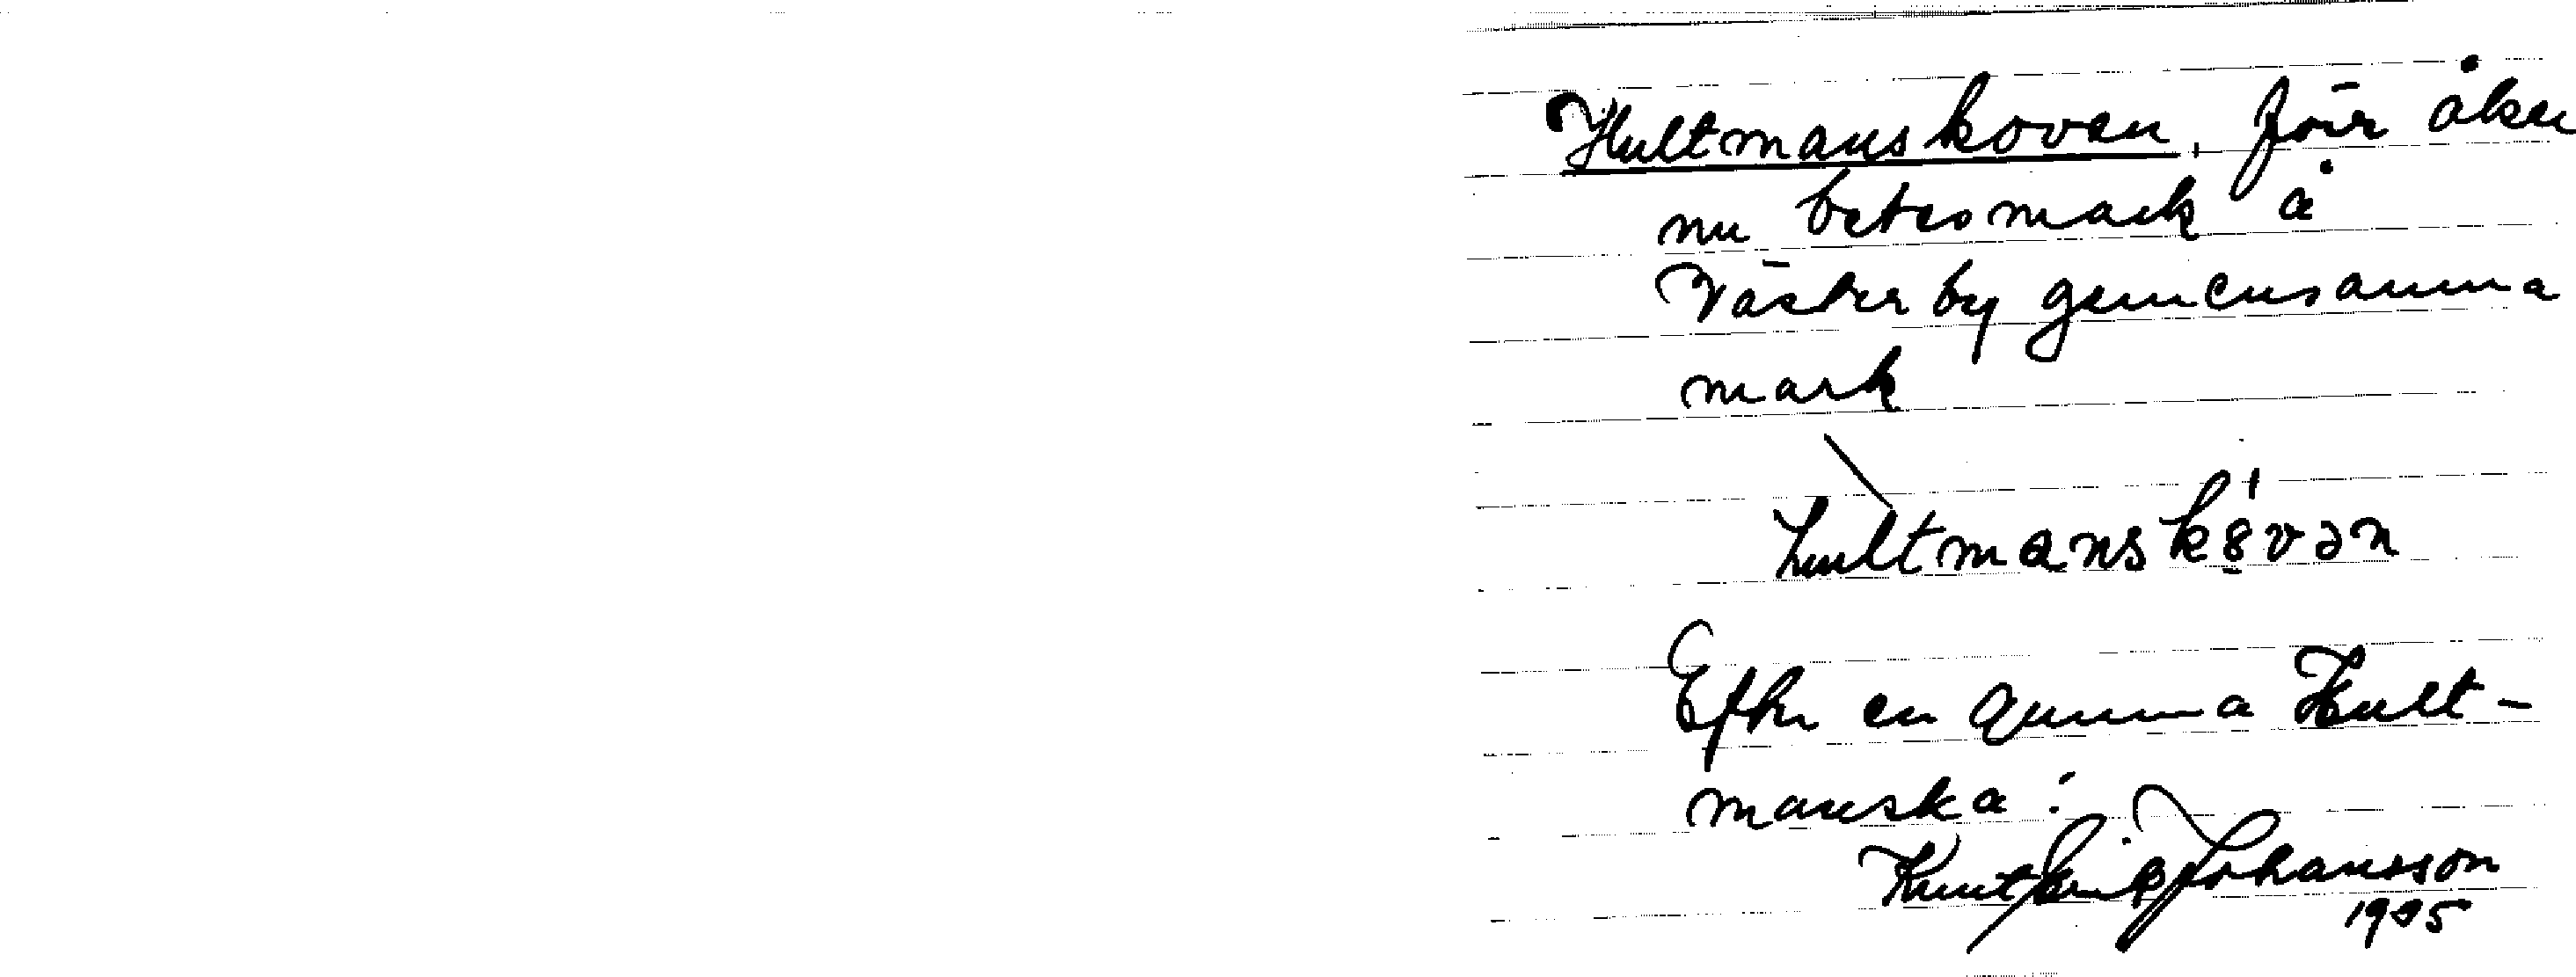 Hultmanskoven, förr åker
nu betesmark å
Västerby gemensamma
mark
hultmanskȣ́vən
Efter en qumma Hult-
manska:
Knut Johansson
1935